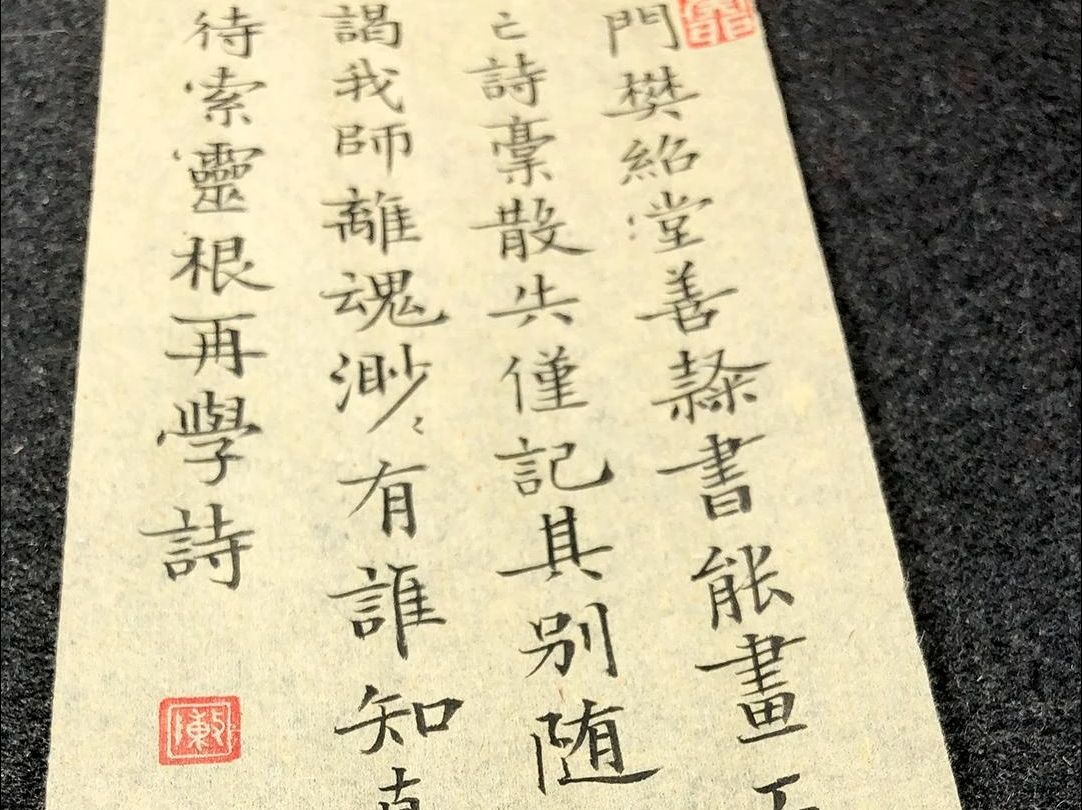 門樊紹堂善隸書能畫
亡詩稾散失僅記其别随
謁我師離魂渺〻有誰知
待索靈根再學詩